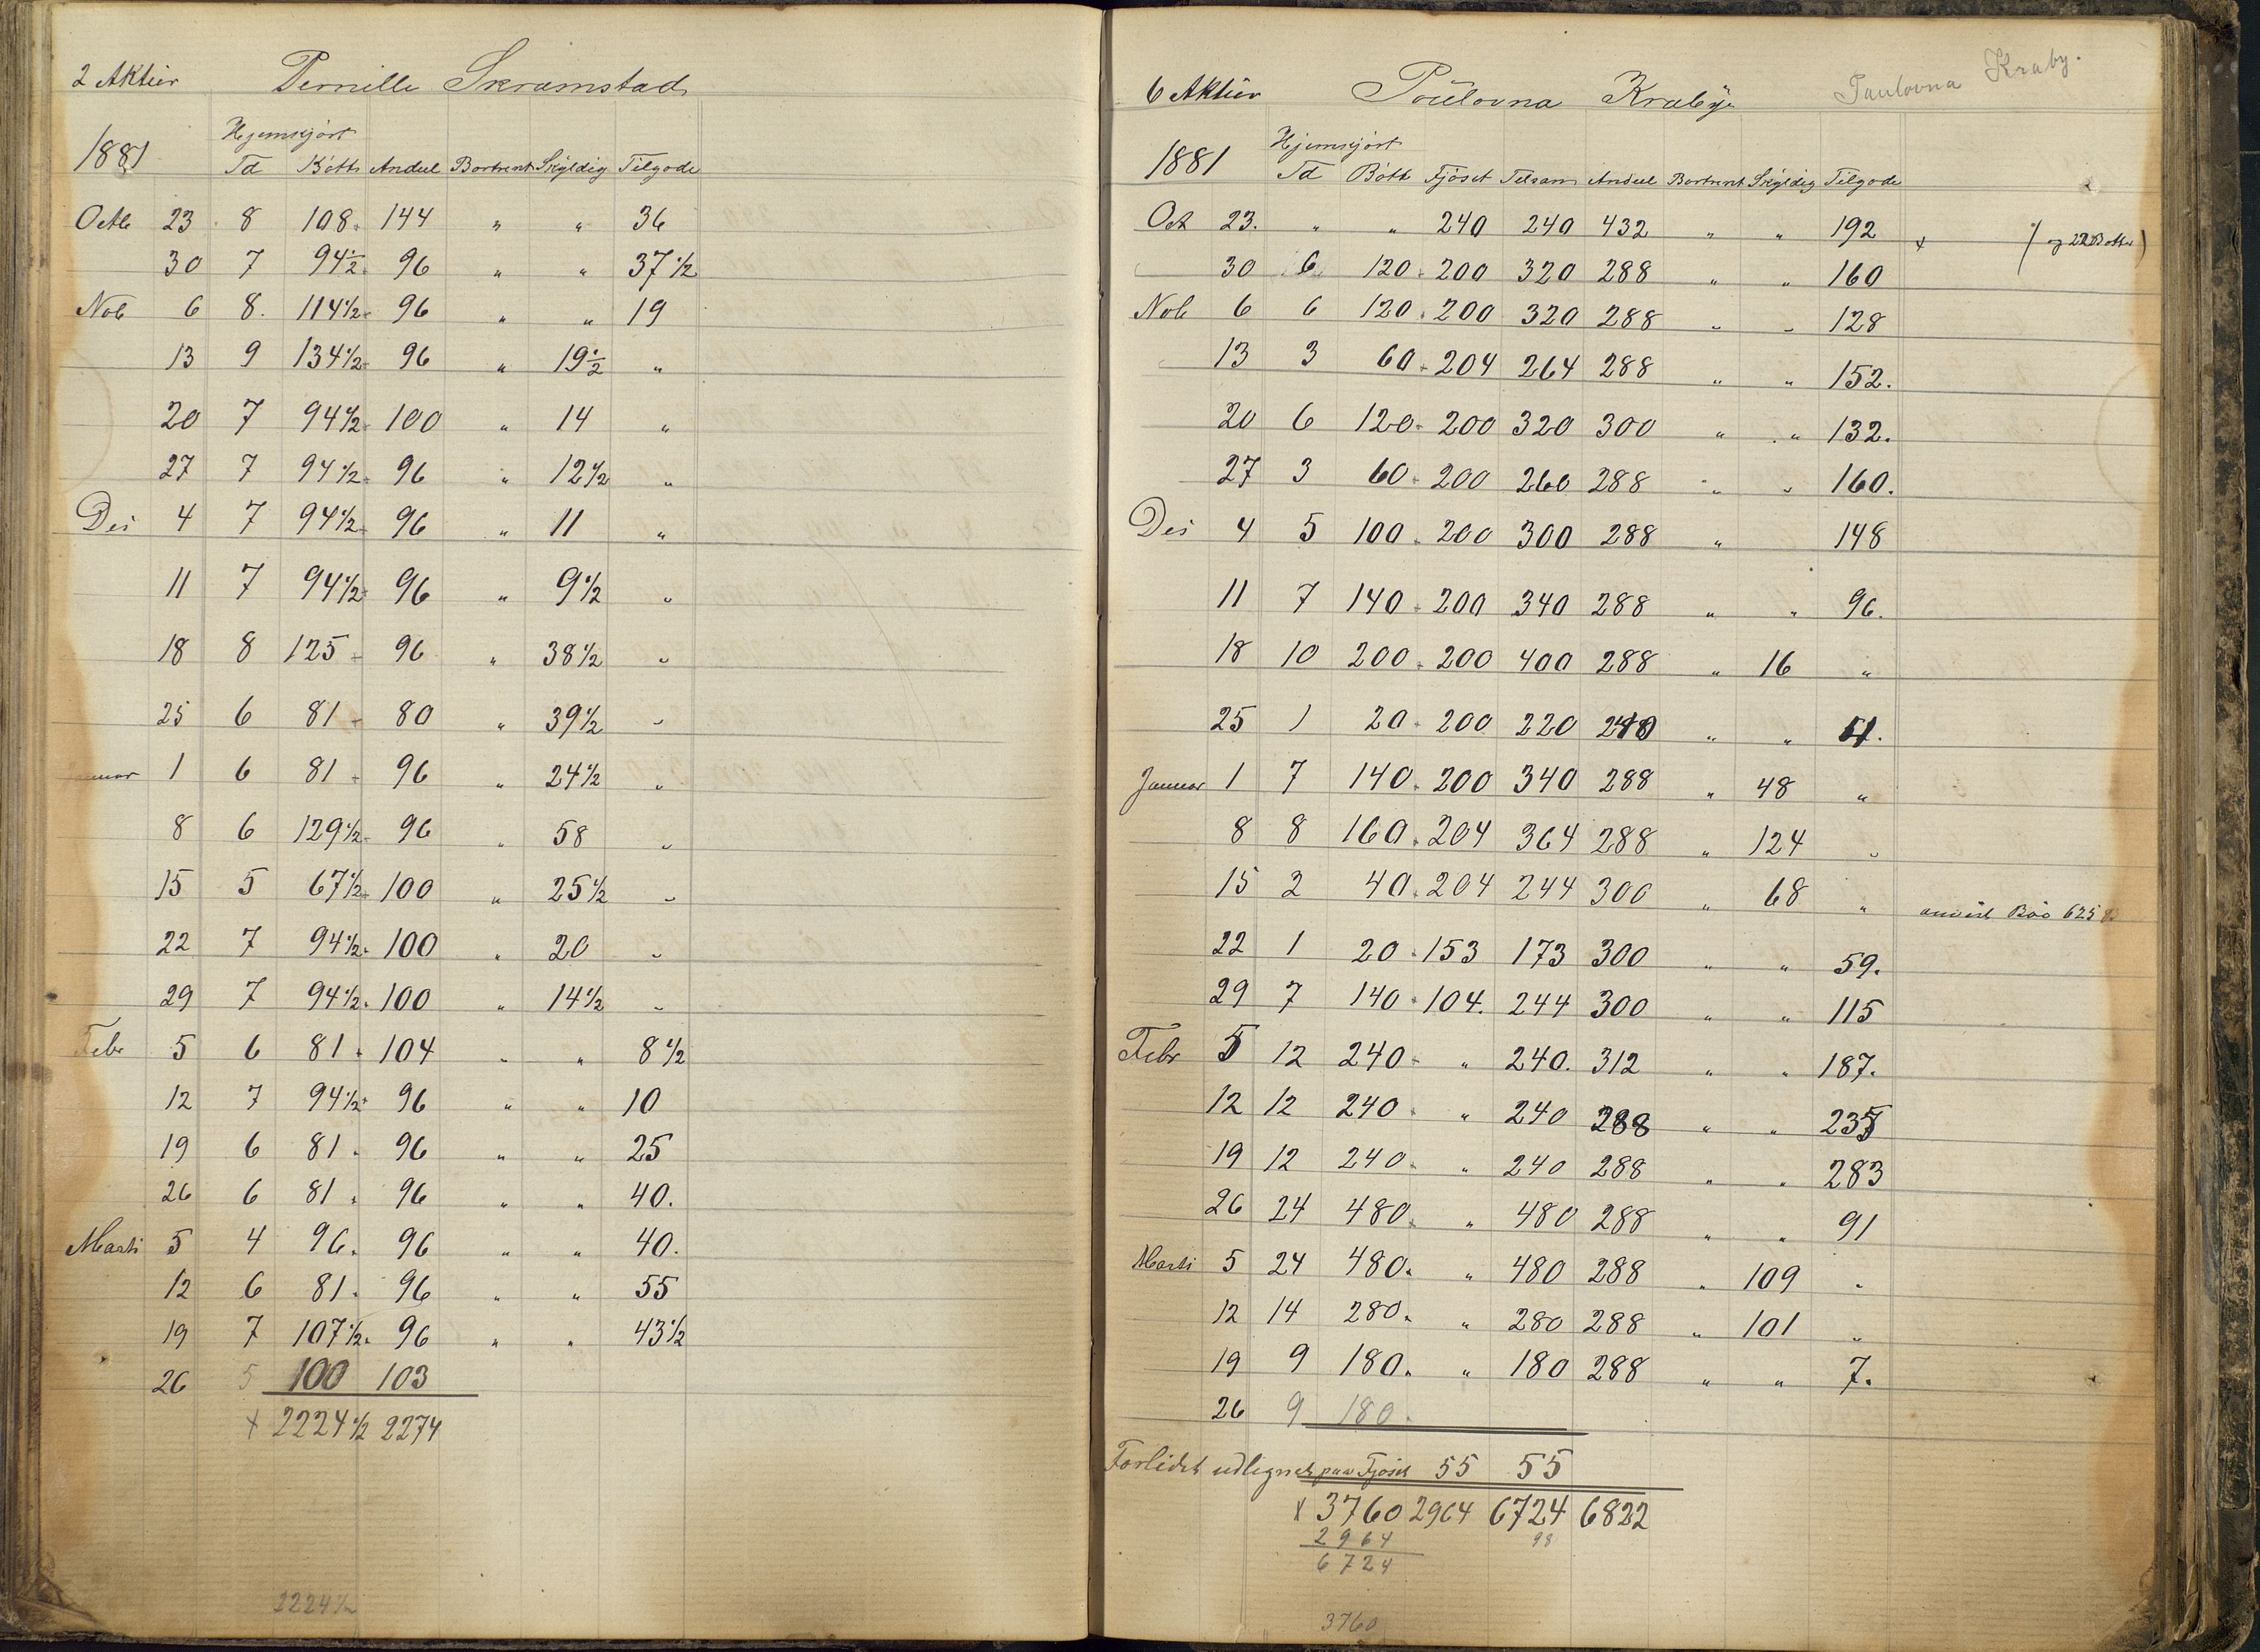 2 Aktier Pernille Skramstad
Hjemkjört
1881 Td Bött Andeel Bortrent Skyldig Tilgode
Octb 23 8 108 144 " " 36
30 7 94½ 96 " " 37½
Nob 6 8. 114½ 96 " " 19
13 9 134½ 96 " 19½ "
20 7 94½ 100 " 14 "
27 7 94½ 96 " 12½ "
Des 4 7 94½ 96 " 11 "
11 7 94½ 96 " 9½ "
18 8 125 96 " 38½ "
25 6 81 80 " 39½ "
Januar 1 6 81 96 " 24½ "
8 6 129½ 96 " 58 "
15 5 67½ 100 " 25½ "
22 7 94½ 100 " 20 "
29 7 94½ 100 " 14½ "
Febr 5 6 81 104 " " 8½
12 7 94½ 96 " " 10
19 6 81 96 " " 25
26 6 81 96 " " 40.
Marts 5 4 96 96 " " 40.
12 6 81 96 " " 55
19 7 107½ 96 " " 43½
26 5 100 103
x 2224½ 2274
2224½
6 Aktier Poulovna Kraby Poulovna Kraby.
Hjemkjört
1881 Td Bött Fjöset Tilsam Andeel Bortrent Skyldig Tilgode
Oct 23. " " 240 240 432 " " 192 x
30 6 120 200 320 288 " " 160
Nob 6 6 120 200 320 288 " " 128
13 3 60 204 264 288 " " 152.
20 6 120 200 320 300 " " 132.
27 3 60 200 260 288 " " 160.
Des 4 5 100 200 300 288 " 148
11 7 140 200 340 288 " " 96.
18 10 200 200 400 288 " 16 "
25 1 20 200 220 240 " "
Januar 1 7 140 200 340 288 " 48 "
8 8 160 204 364 288 " 124 "
15 2 40 204 244 300 " 68 " 625
22 1 20 153 173 300 " " 59.
29 7 140 104. 244 300 " " 115
Febr 5 12 240 " 240. 312 " " 187.
12 12 240 " 240 288 " " 235
19 12 240 " 240 288 " " 283
26 24 480 " 480 288 " " 91
Marts 5 24 480 " 480 288 " 109 "
12 14 280 " 280 288 " 101 "
19 9 180 " 180 288 " " 7.
26 9 180
Forlidet udlignet paa Fjöset 55 55
x 3760 2964 6724 6822
2964 98
6724
3760